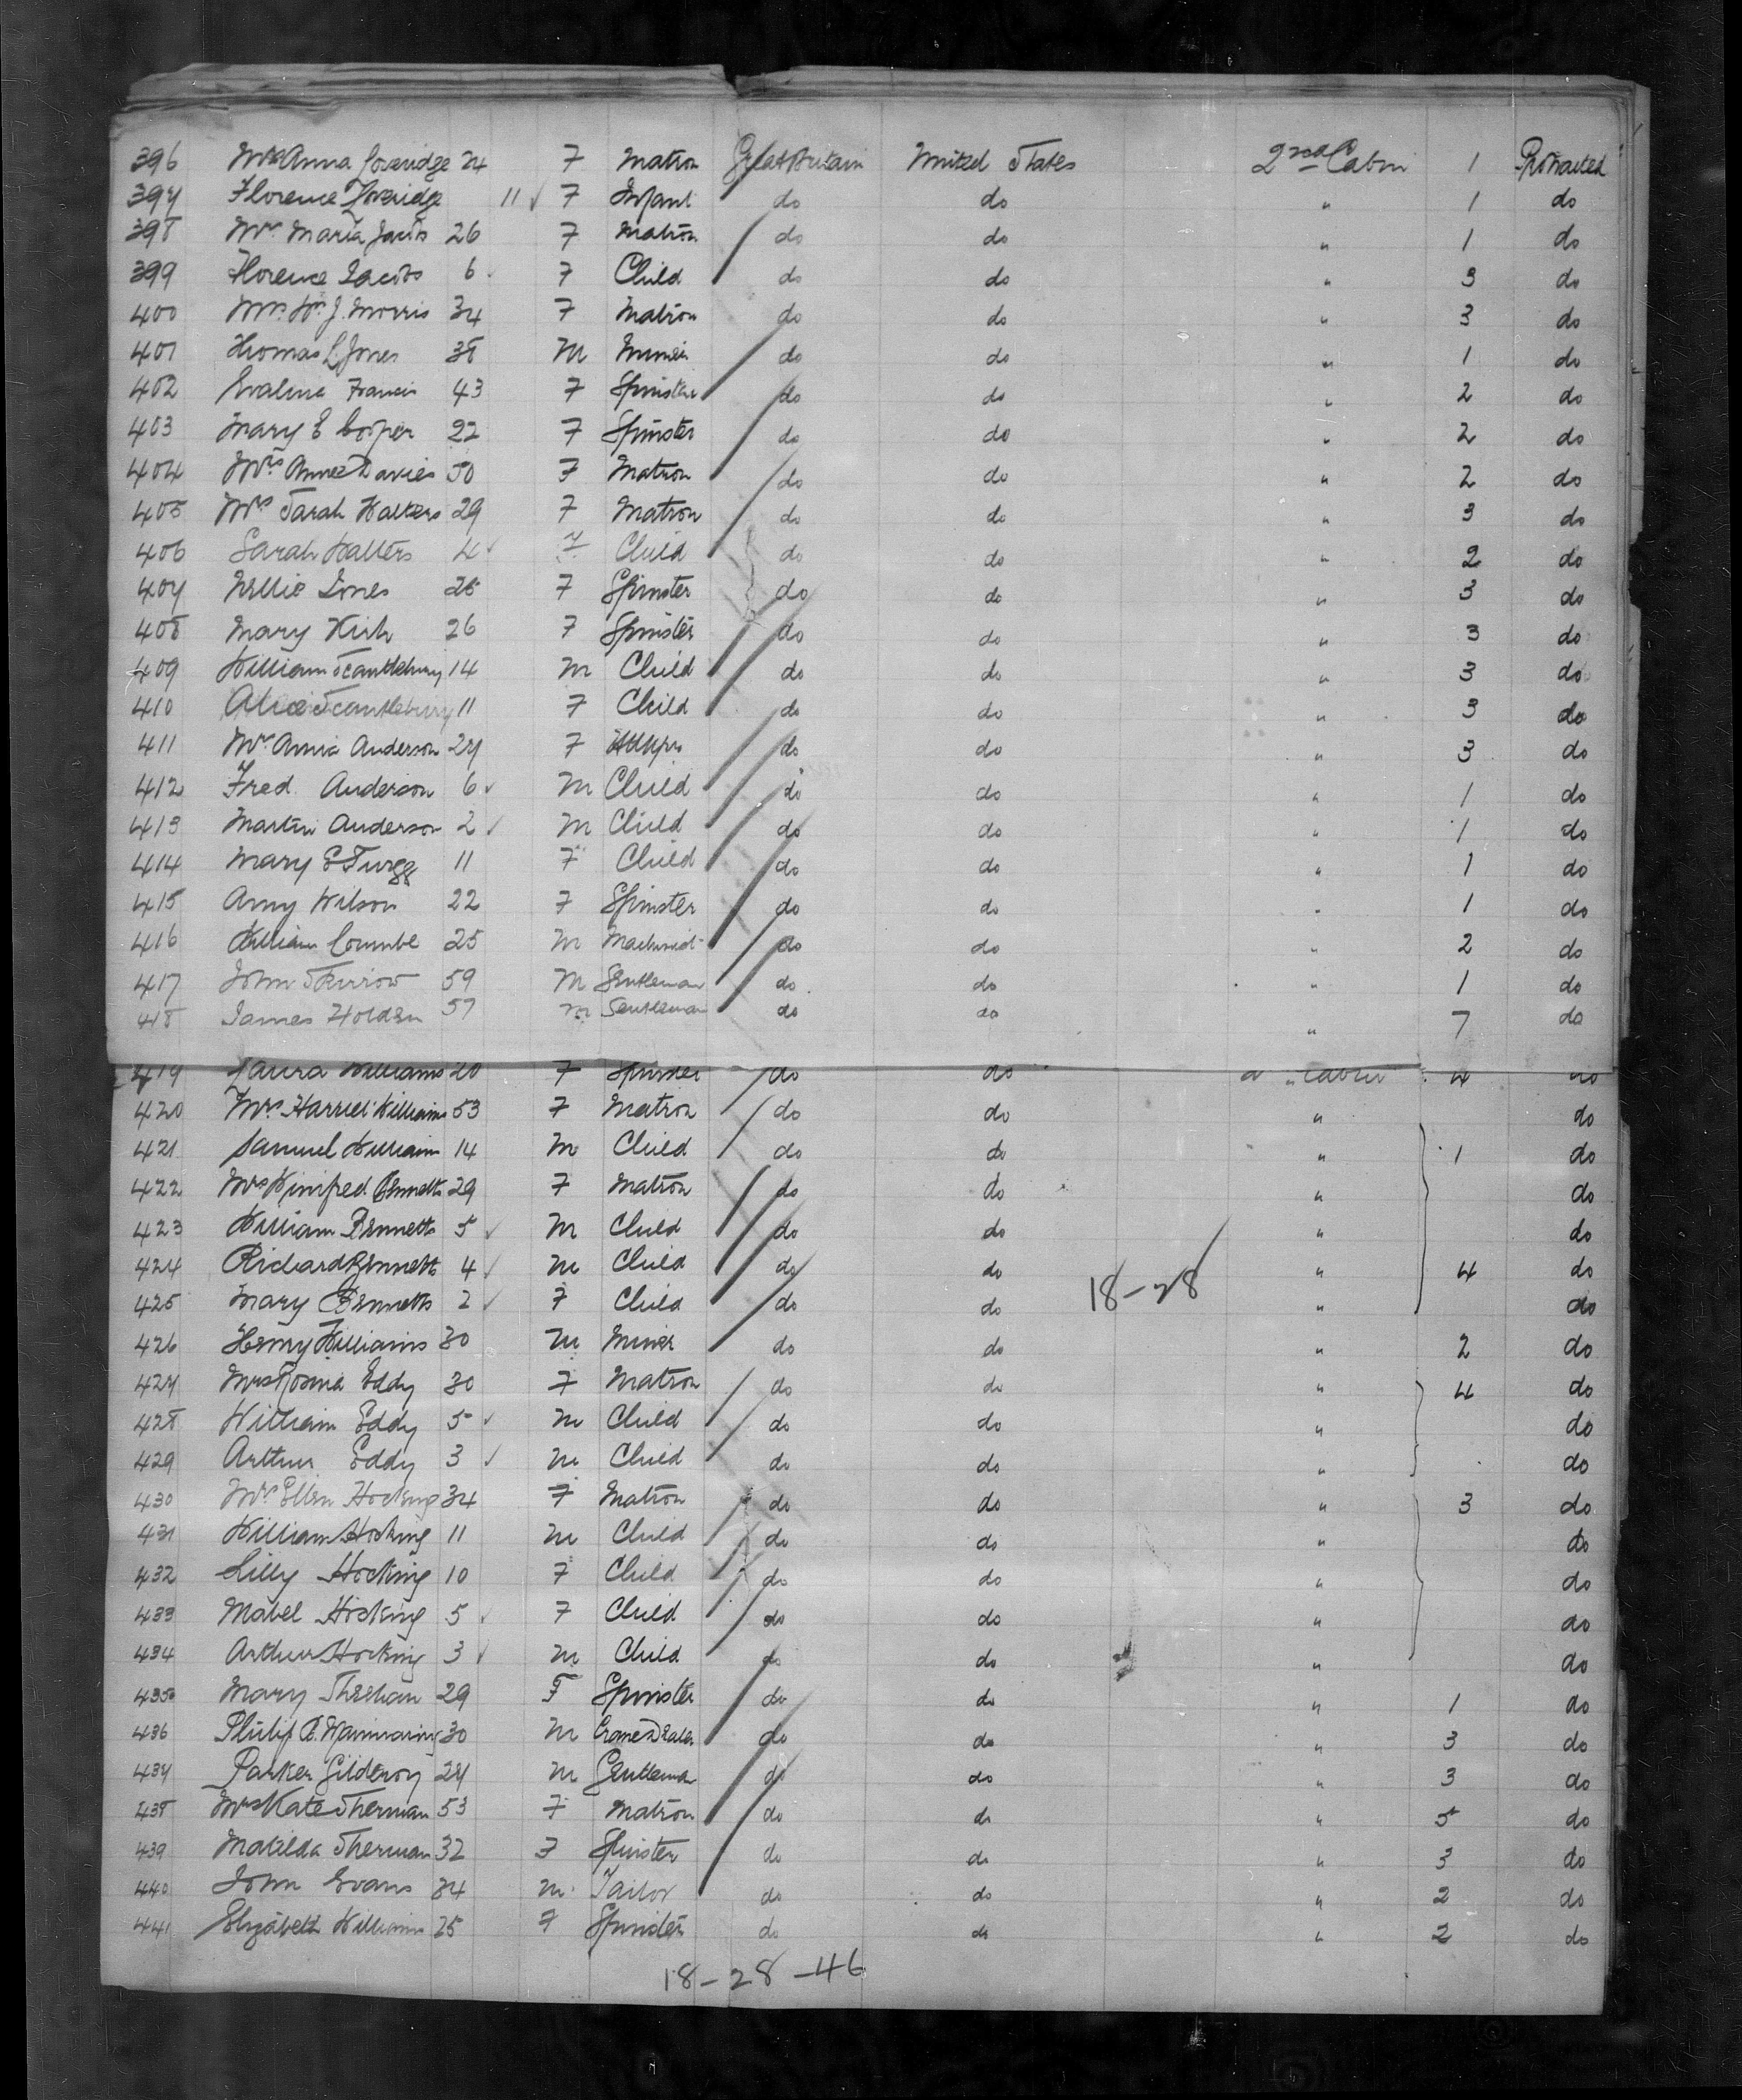 396 Mrs Anna Loveridge 24 F Matron Great Britain United States 2nd Cabin 1 Protracted
397 Florence Loveridge 11 ✓ F Infant do do " 1 do
398 Mrs Maria Jacobs 26 F Matron do do " 1 do
399 Florence Jacobs 6 ✓ F Child do do " 3 do
400 Mrs Wm J. Morris 34 F Matron do do " 3 do
401 Thomas L. Jones 38 M Miner do do " 1 do
402 Evalina Francis 43 F Spinster do do " 2 do
403 Mary E Cooper 22 F Spinster do do " 2 do
404 Mrs Annie Davies 50 F Matron do do " 2 do
405 Mrs Sarah Walters 29 F Matron do do " 3 do
406 Sarah Walters 4 ✓ F Child do do " 2 do
407 Nellie Jones 26 F Spinster do do " 3 do
408 Mary Kirk 26 F Spinster do do " 3 do
409 William Scantlebury 14 M Child do do " 3 do
410 Alice Scantlebury 11 F Child do do " 3 do
411 Mrs Annie Anderson 27 F do do " 3 do
412 Fred. Anderson 6 ✓ M Child do do " 1 do
413 Martin Anderson 2 ✓ M Child do do " 1 do
414 Mary E 11 F Child do do " 1 do
415 Amy Wilson 22 F Spinster do do " 1 do
416 William Coumbe 25 M Machinist do do " 2 do
417 John 59 M Gentleman do do " 1 do
418 James Holden 57 M Gentleman do do " 7 do
419 Laura Williams 20 F Spinster do do 2 " Cabin 4 do
420 Mrs Harriet Williams 53 F Matron do do " do
421 Samuel William 14 M Child do do " 1 do
422 Mrs Winifred Bennetts 29 F Matron do do " do
423 William Bennetts 5 ✓ M Child do do " do
424 Richard Bennetts 4 ✓ M Child do do 18-28 " 4 do
425 Mary Bennetts 2 ✓ F Child do do " do
426 Henry Williams 30 M Miner do do " 2 do
427 Mrs Rosina Eddy 30 F Matron do do " 4 do
428 William Eddy 5 ✓ M Child do do " do
429 Arthur Eddy 3 ✓ M Child do do " do
430 Mrs Ellen Hocking 34 F Matron do do " 3 do
431 William Hocking 11 M Child do do " do
432 Lilly Hocking 10 F Child do do " do
433 Mabel Hocking 5 ✓ F Child do do " do
434 Arthur Hocking 3 ✓ M Child do do " do
435 Mary Sheehan 29 F Spinster do do " 1 do
436 Philip 30 M do do " 3 do
437 Parker Gilderoy 27 M Gentleman do do " 3 do
438 Mrs Kate Sherman 53 F Matron do do " 5 do
439 Matilda Sherman 32 F Spinster do do " 3 do
440 John Evans 34 M Tailor do do " 2 do
441 Elizabeth Williams 25 F Spinster do do " 2 do
18-28-46